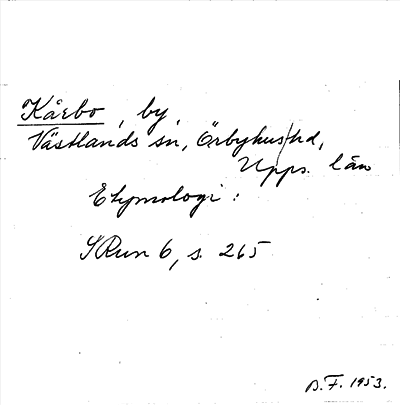 Kårbo, by,
Västlands sn, Örbyhus hd,
Upps. län
Etymologi:
SRun 6, s. 265
B.F. 1953.